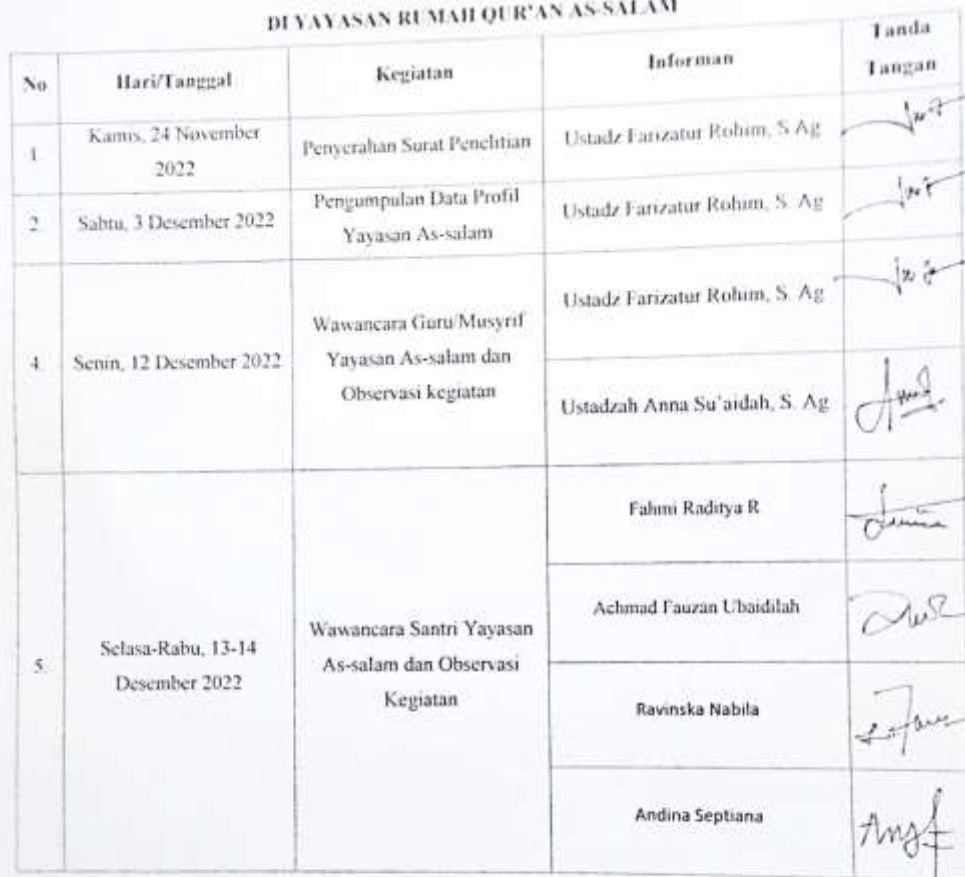 DI YAYASAN RUMAH QUR'AN AS-SALAM
No
Hari/Tanggal
Kegiatan
Informan
Tanda
Tangan
1.
Kamis, 24 November
2022
Penyerahan Surat Penelitian
Ustadz Farizatur Rohim, S. Ag
2.
Sabtu, 3 Desember 2022
Pengumpulan Data Profil
Yayasan As-salam
Ustadz Farizatur Rohim, S. Ag
4.
Senin, 12 Desember 2022
Wawancara Guru/Musyrif
Yayasan As-salam dan
Observasi kegiatan
Ustadz Farizatur Rohim, S. Ag
Ustadzah Anna Su'aidah, S. Ag
5.
Selasa-Rabu, 13-14
Desember 2022
Wawancara Santri Yayasan
As-salam dan Observasi
Kegiatan
Fahmi Raditya R
Achmad Fauzan Ubaidilah
Ravinska Nabila
Andina Septiana